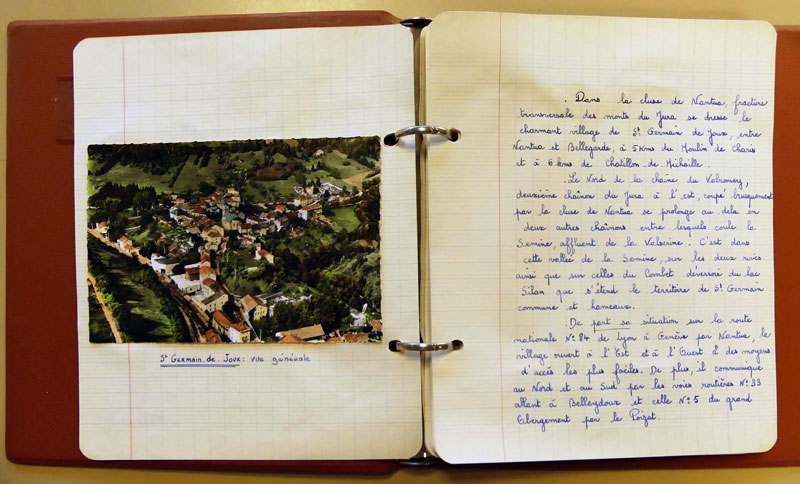 St Germain-de-Joux: vue générale
. Dans la cluse de Nantua, fracture
transversale des monts du Jura se dresse le
charmant village de St Germain de Joux, entre
Nantua et Bellegarde, à 5 kms du Moulin de Charix
et à 6 kms de Chatillon-de-Michaille.
. Le Nord de la chaîne du Valromey,
deuxième chaînon du Jura à l'est, coupé brusquement
par la cluse de Nantua se prolonge au delà en
deux autres chaînons entre lesquels coule la
Semine, affluent de la Valserine. C'est dans
cette vallée de la Semine, sur les deux rives
ainsi que sur celles du Combet déversoir du lac
Silan que s'étend le territoire de St Germain
commune et hameaux.
. De part sa situation sur la route
nationale N° 84 de Lyon à Genève par Nantua, le
village ouvert à l'Est et à l'Ouest a des moyens
d'accès les plus faciles. De plus, il communique
au Nord et au Sud par les voies routières N° 33
allant à Belleydoux et celle N° 5 du grand
Abergement par le Poizat.